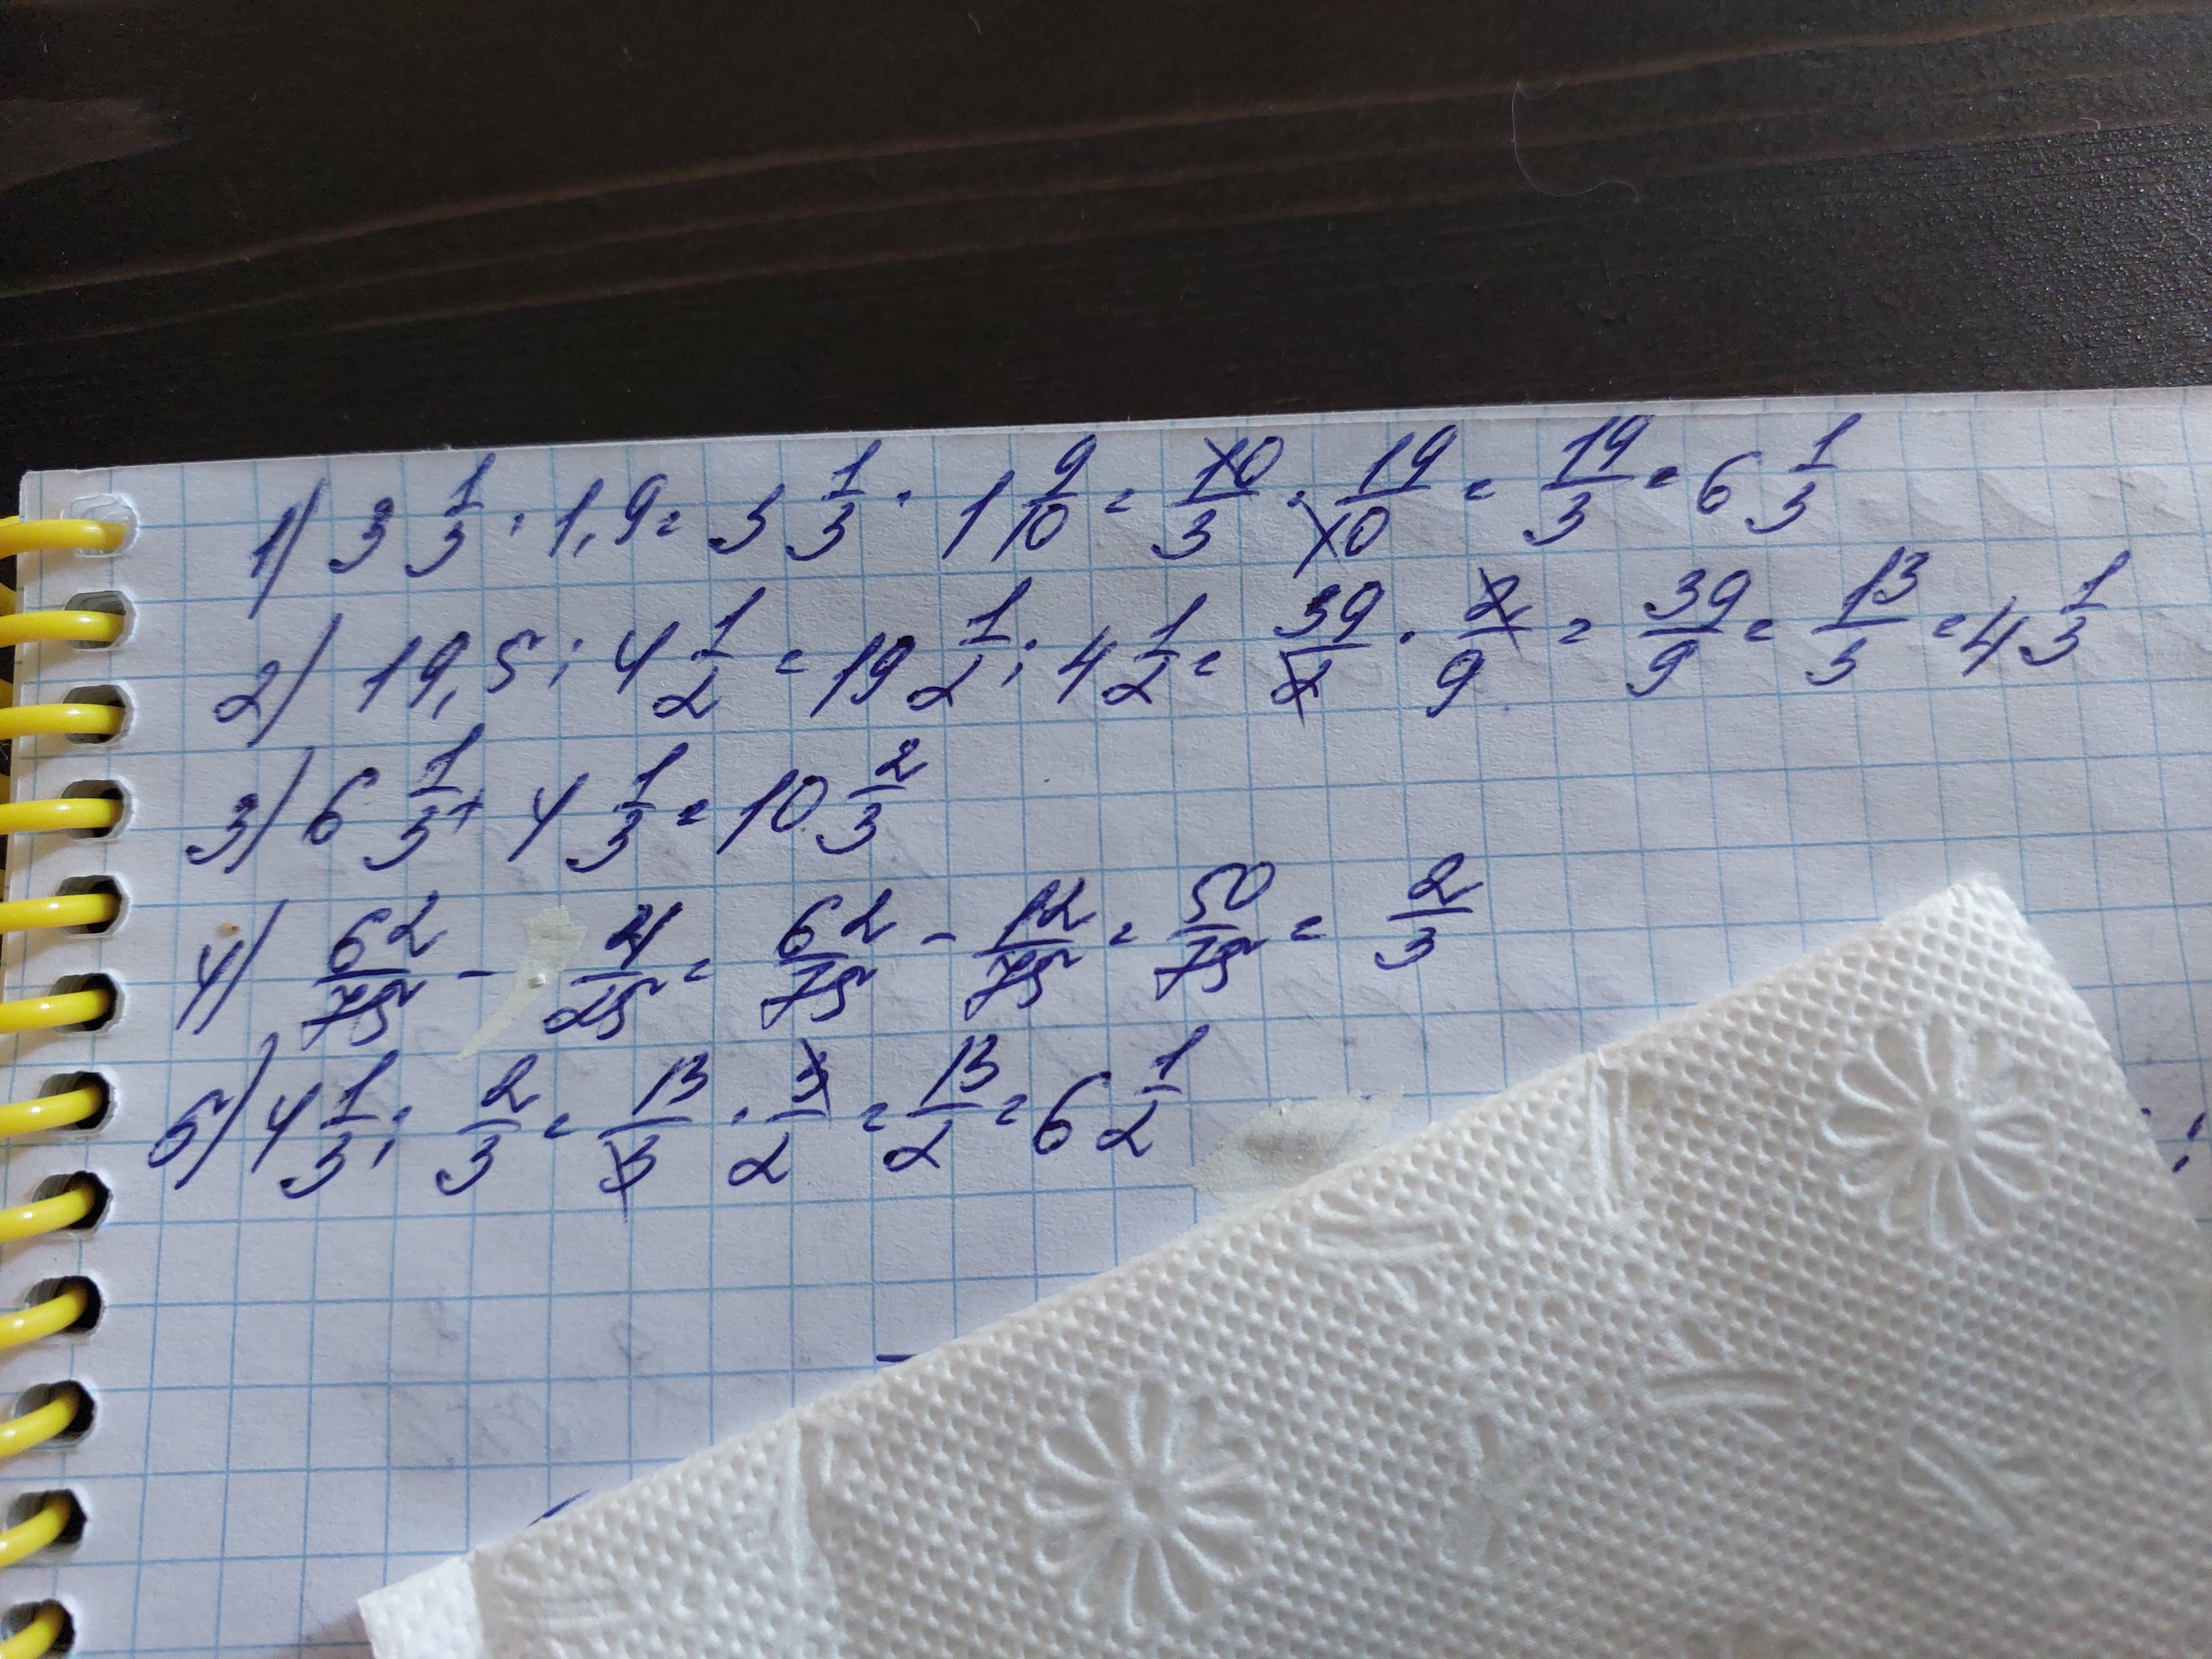 1) 3 1/3 · 1,9 = 3 1/3 · 1 9/10 = 10/3 · 19/10 = 19/3 = 6 1/3
2) 19,5 : 4 1/2 = 19 1/2 : 4 1/2 = 39/2 · 2/9 = 39/9 = 13/3 = 4 1/3
3) 6 1/3 + 4 1/3 = 10 2/3
4) 62/75 - 4/25 = 62/75 - 12/75 = 50/75 = 2/3
5) 4 1/3 : 2/3 = 13/3 · 3/2 = 13/2 = 6 1/2